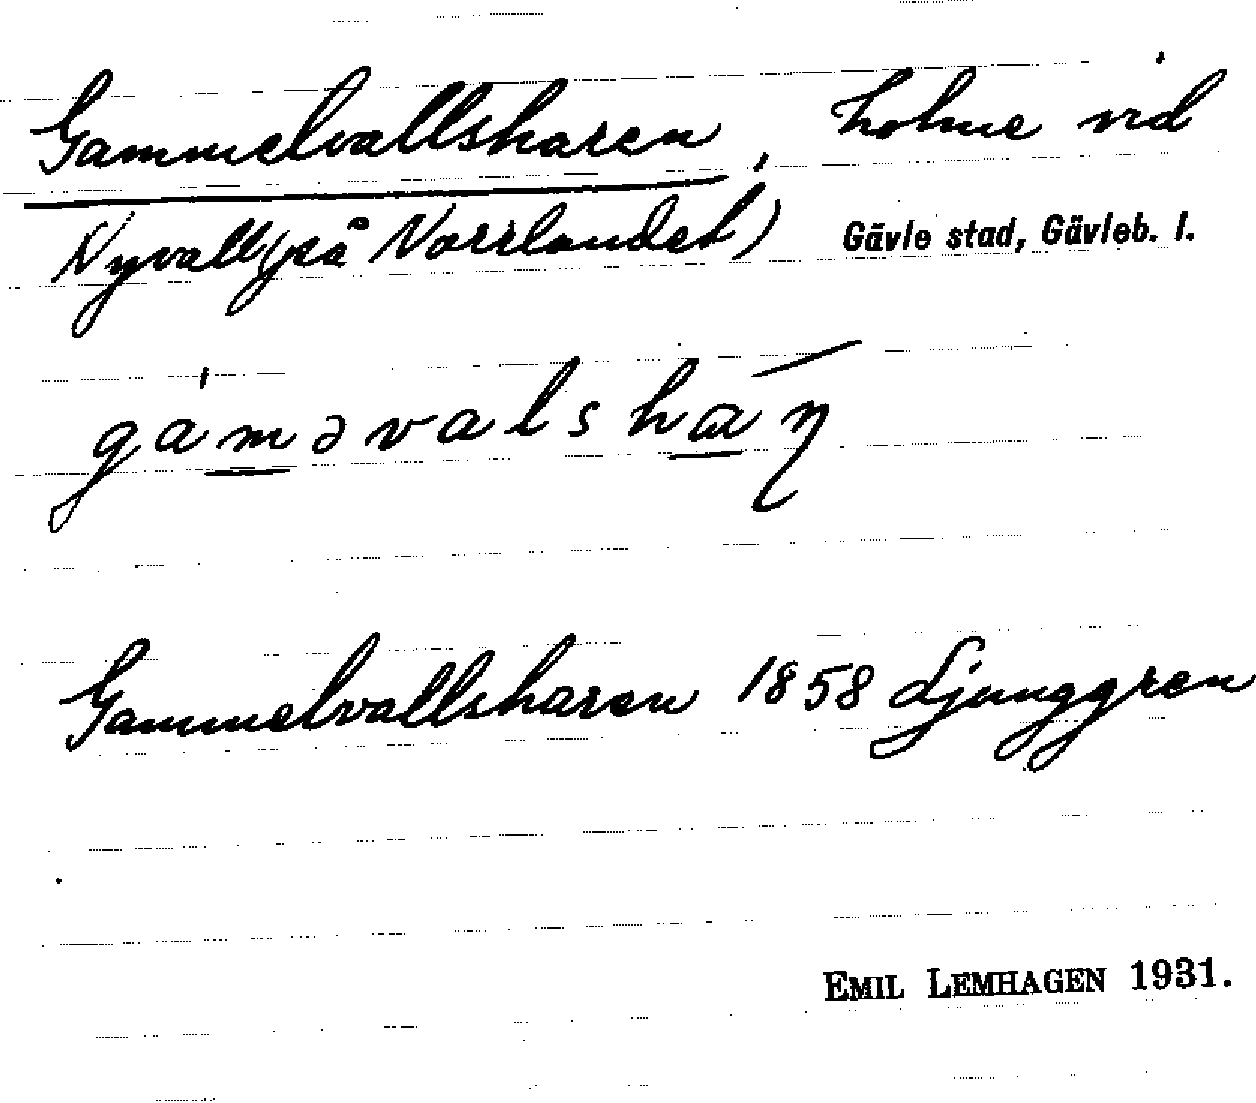 Gammelvallsharen, holme vid
Nyvall (på Norrlandet) Gävle stad, Gävleb. l.
gaməvalshaɳ
Gammelvallsharen 1858 Ljunggren
EMIL LEMHAGEN 1931.